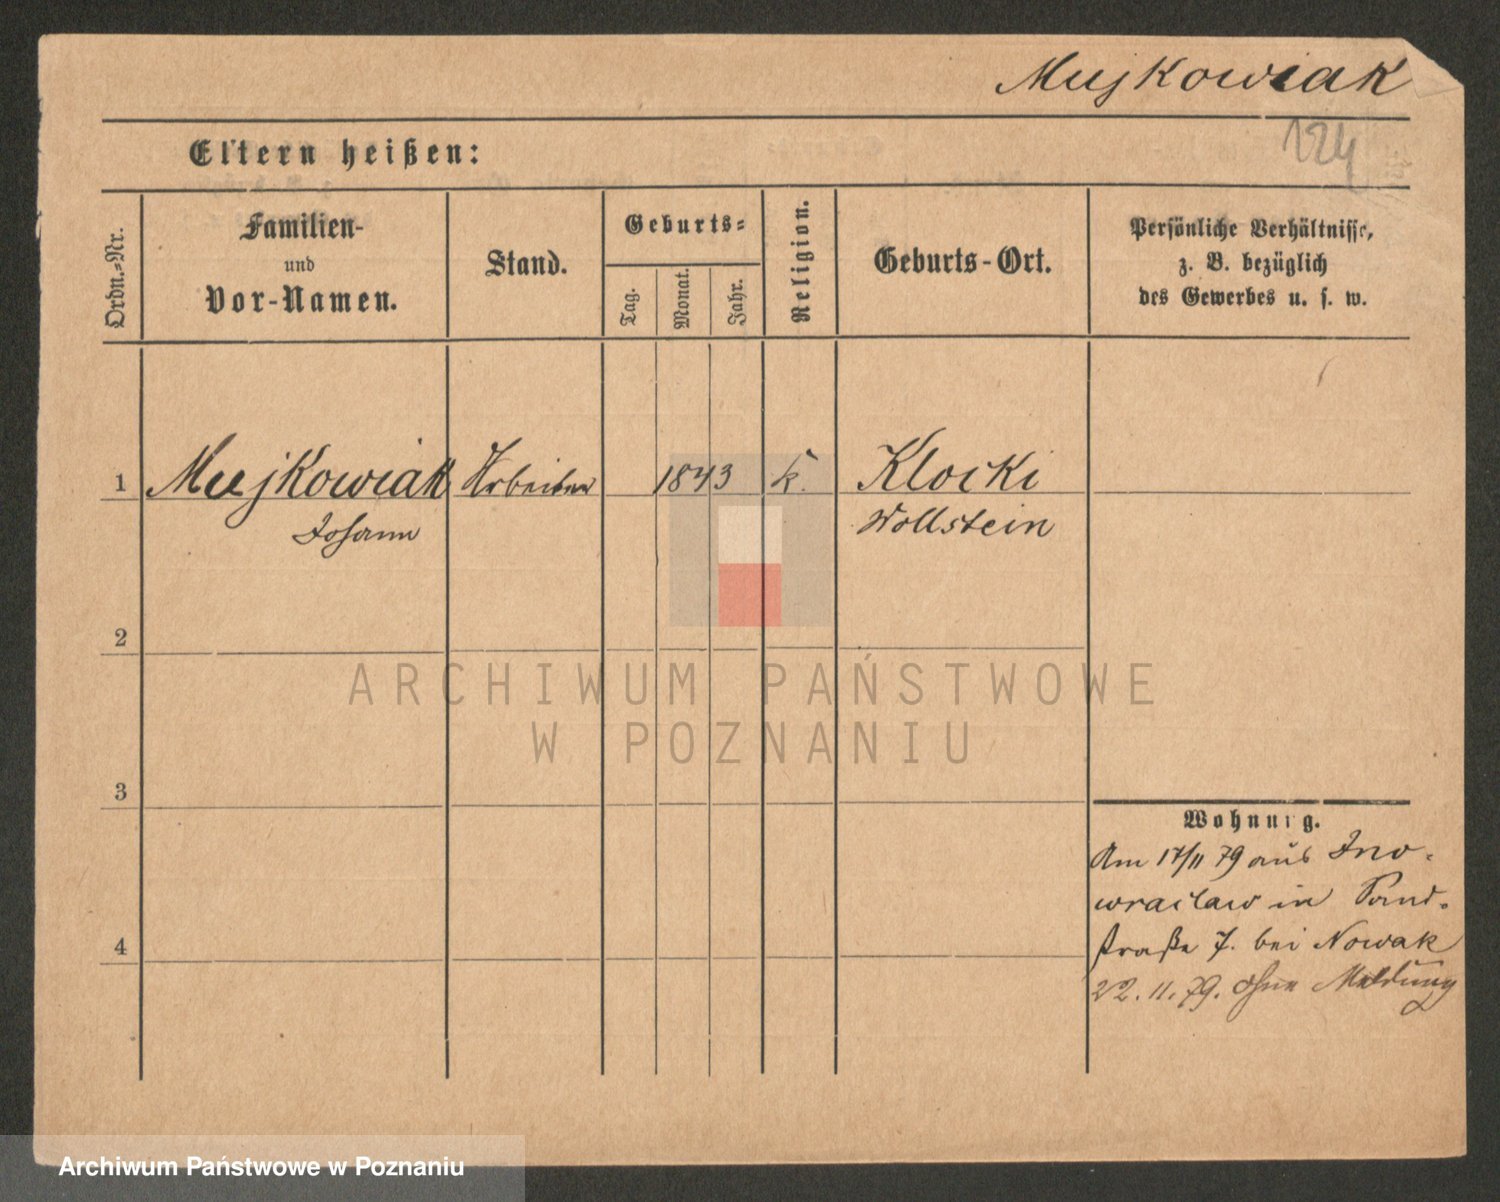 Mujkowiak
124
Eltern heißen:
Ordn.-Nr.
Familien-
und
Vor-Namen.
Stand.
Geburts-
Tag.
Monat.
Jahr.
Religion.
Geburts-Ort.
Persönliche Verhältnisse,
z. B. bezüglich
des Gewerbes u. s. w.
1 Mujkowiak Arbeiter 1843 k. Klocki
Johann Wollstein
2
ARCHIWUM PAŃSTWOWE
W POZNANIU
3
Wohnung.
Am 17/11 79 aus Ino-
wraclaw in Sand-
straße 7. bei Nowak
4
22.11.79. ohne Meldung
Archiwum Państwowe w Poznaniu